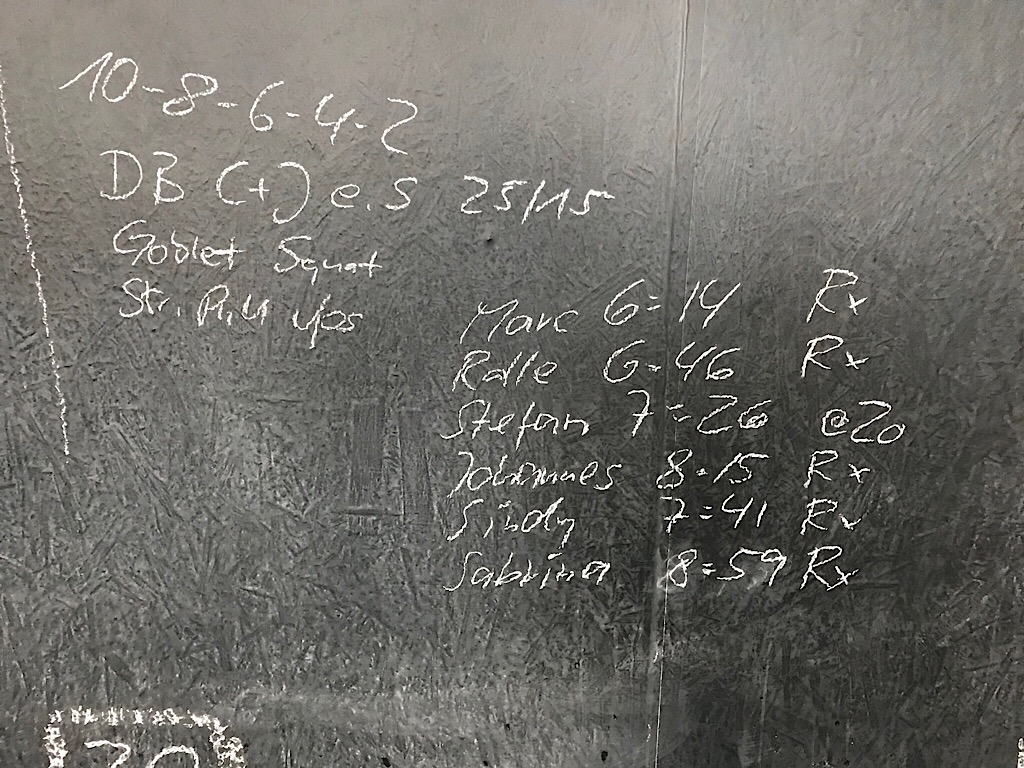 10-8-6-4-2
DB (+) e.s 25/15
Goblet Squat
Str. P.U
Marc 6=14 Rx
Ralle 6=46 Rx
Stefan 7=26 @20
Johannes 8=15 Rx
Sindy 7=41 Rx
Sabrina 8=59 Rx